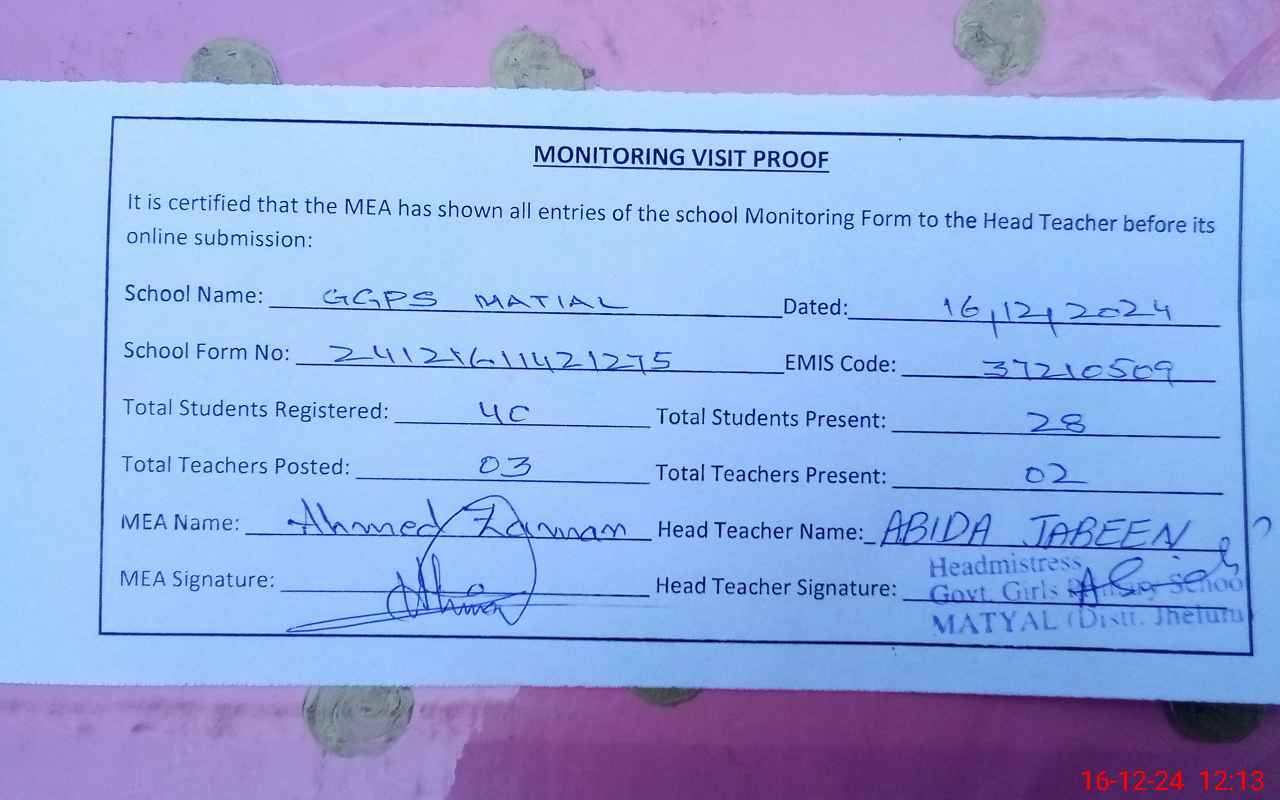 MONITORING VISIT PROOF
It is certified that the MEA has shown all entries of the school Monitoring Form to the Head Teacher before its
online submission:
School Name: GGPS MATIAL Dated: 16,12,2024
School Form No: 24121611421275 EMIS Code: 37210509
Total Students Registered: 40 Total Students Present: 28
Total Teachers Posted: 03 Total Teachers Present: 02
MEA Name: Ahmed Zaman Head Teacher Name: ABIDA JABEEN
MEA Signature: Head Teacher Signature:
Headmistress
Govt. Girls Schoo
MATYAL (Distt. Jhelum
16-12-24 12:13